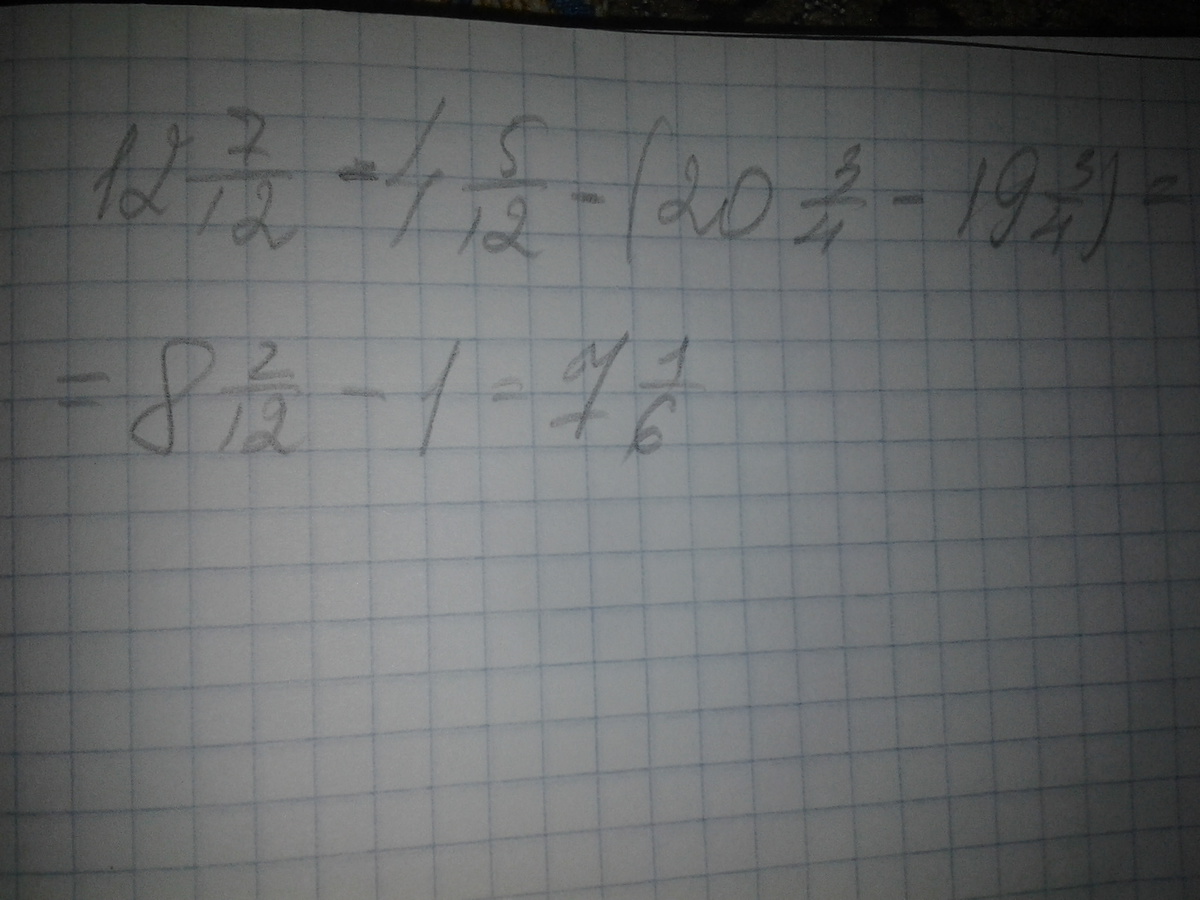 12 7/12 - 4 5/12 - (20 3/4 - 19 3/4) =
= 8 2/12 - 1 = 7 1/6